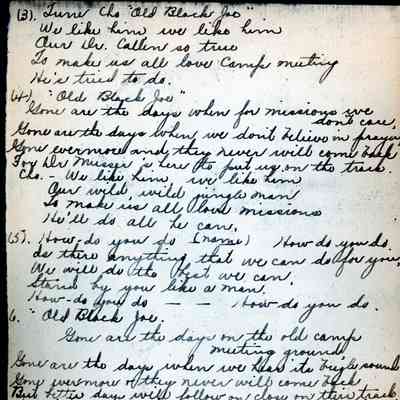 (3). Tune Cho "Old Black Joe"
We like him we like him
Our Dr. Callen so true
To make us all love Camp meeting
He's tried to do.
(4). "Old Black Joe"
Gone are the days when for missions we
dont care,
Gone are the days when we don't believe in prayer
Gone evermore and they never will come back
For Dr. Musser's here to put us on the track.
Cho. - We like him, we like him
Our wild wild jungle man
To make us all love missions
He'll do all he can.
(5). How-do you do (name) How do you do.
Is there anything that we can do for you,
We will do the best we can,
Stand by you like a man.
How-do you do — — How do you do.
6. "Old Black Joe.
Gone are the days on the old camp
meeting ground,
Gone are the days when we hear its bugle sound
Gone evermore they never will come back
But better days will follow on close on their track